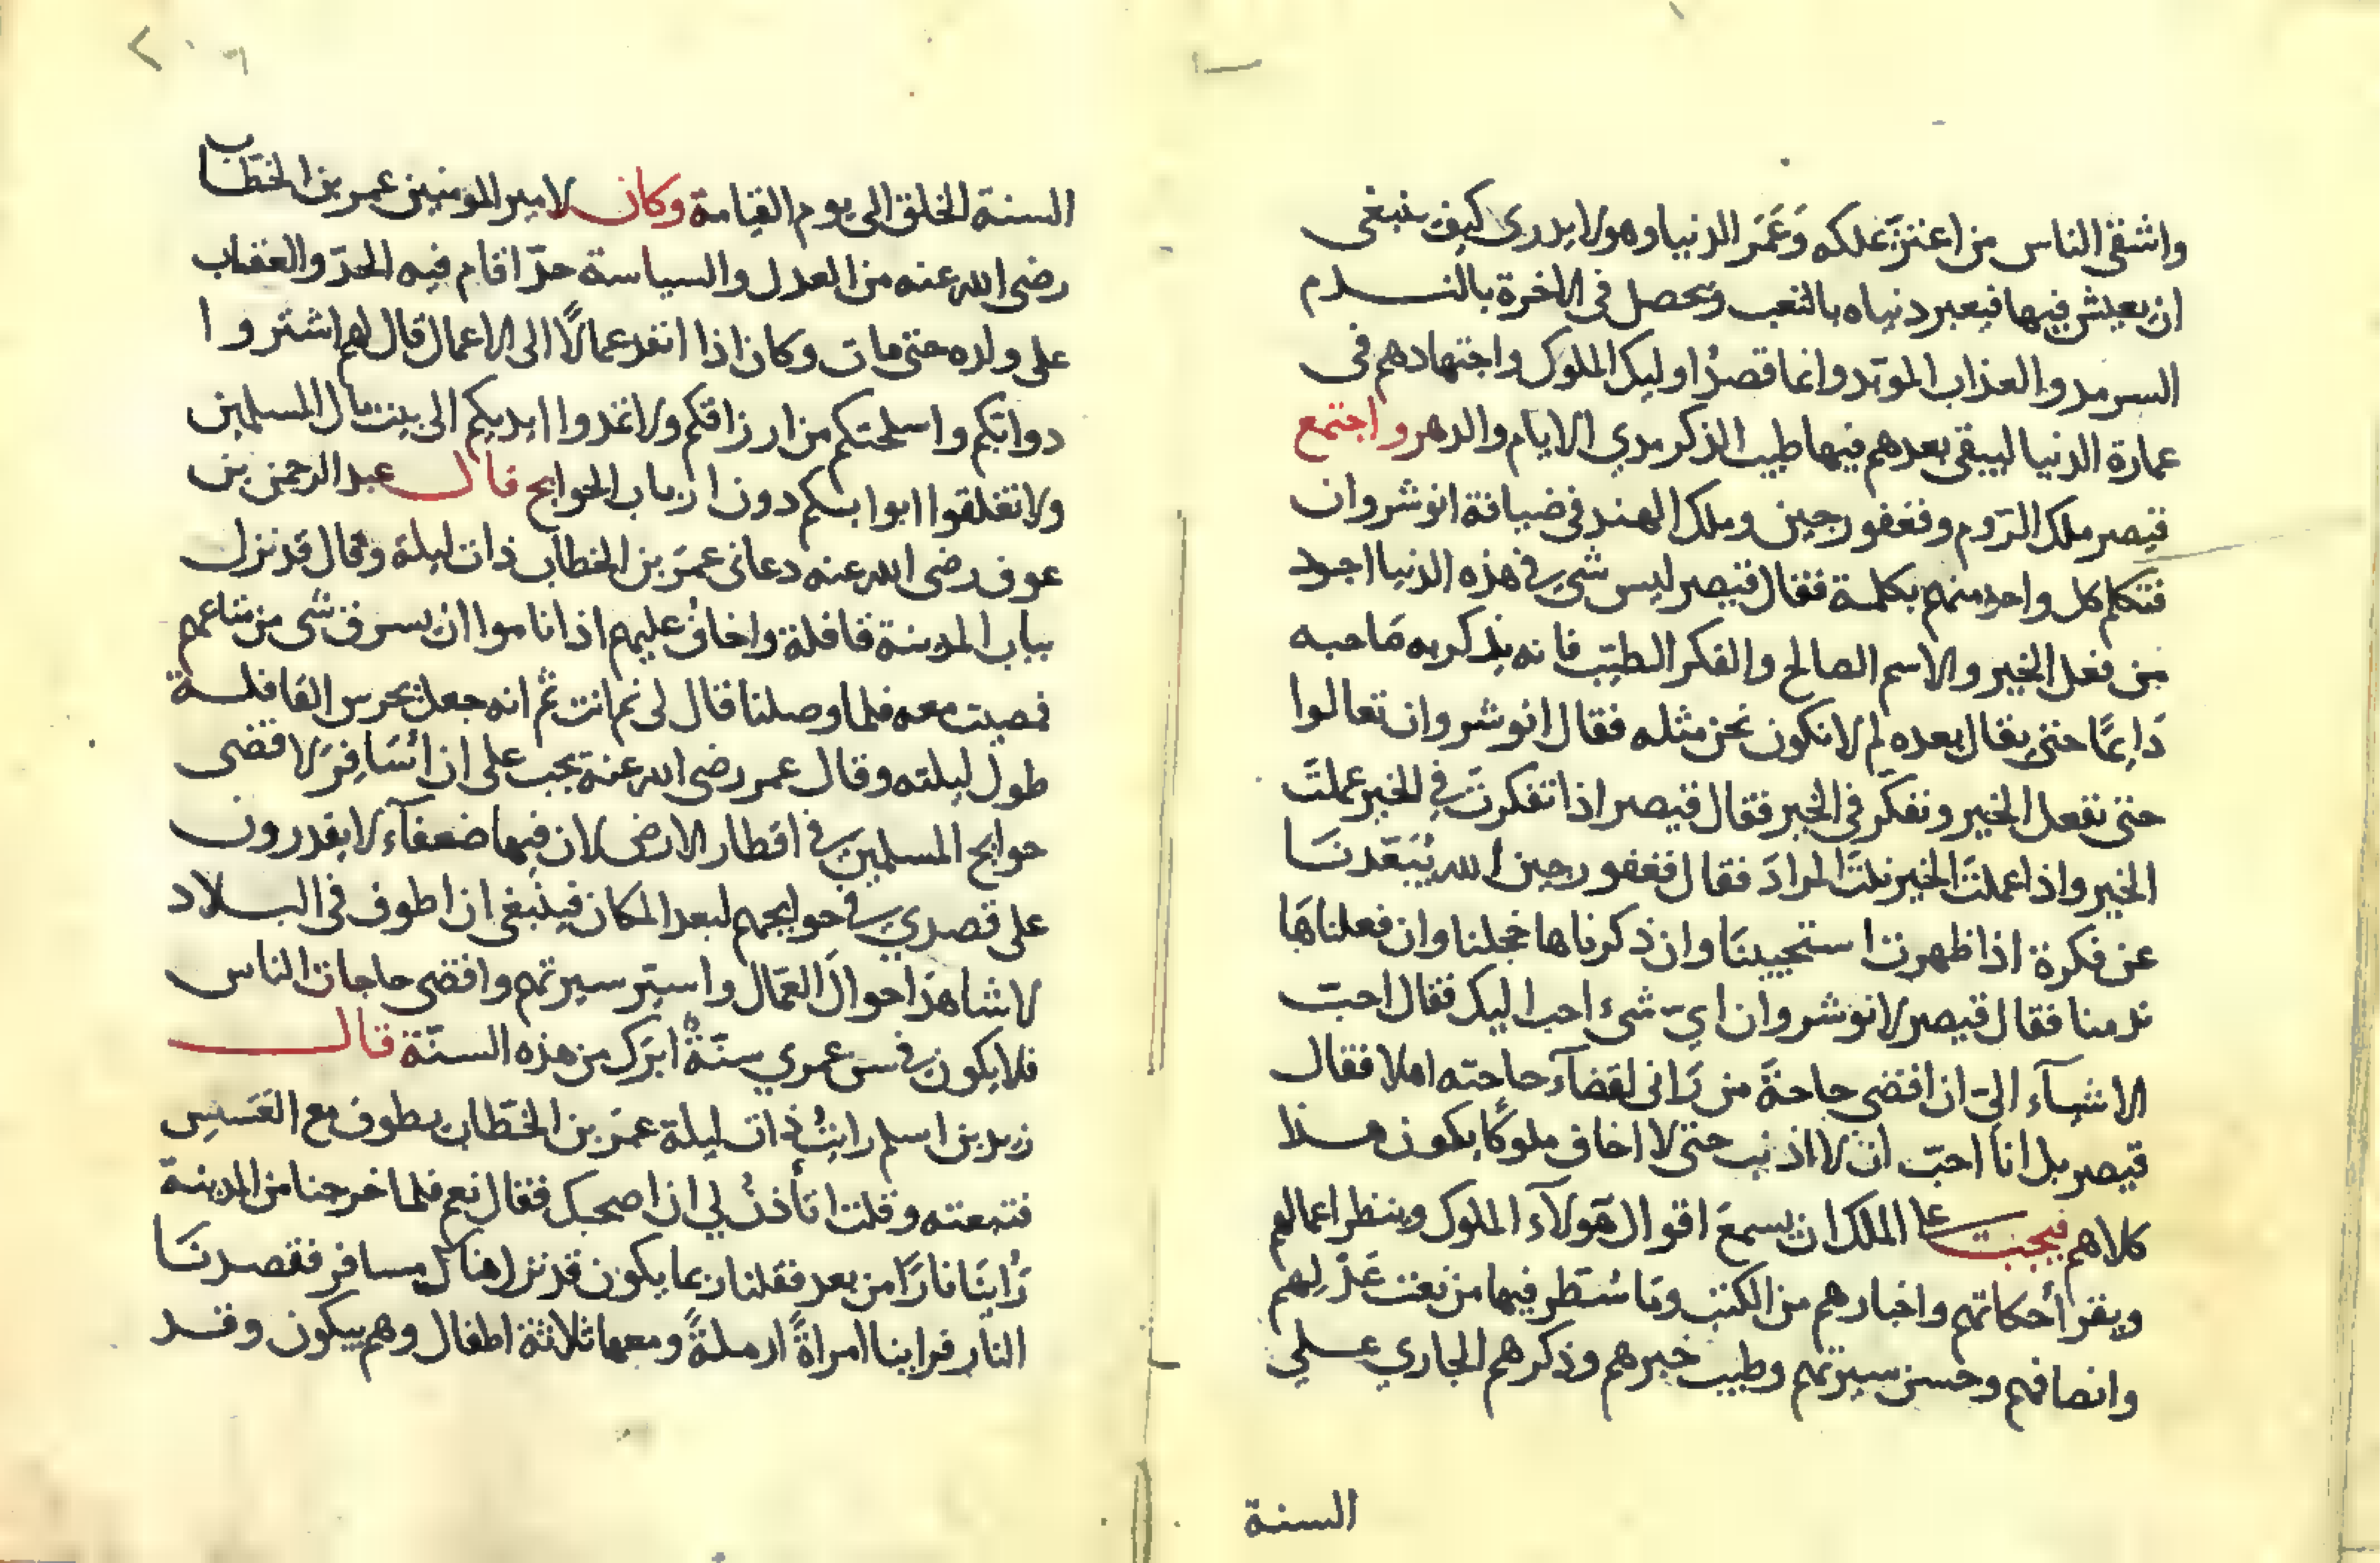 واشقى الناس من اعتز بملكه وَعَمَر الدنيا وهو لا يدرى كيف ينبغى
ان يعيش فيها فيعبر دنياه بالتعب ويحصل فى الاخرة بالندم
السرمد والعذاب الموبد وانما قصدُ اوليك الملوك واجتهادهم فى
عمارة الدنيا ليبقى بعدهم فيها طيب الذكر مدي الايام والدهر واجتمع
قيصر ملك الروم وفغفور جين وملك الهند فى ضيافة انوشروان
فتكلم كل واحد منهم بكلمة فقال قيصر ليس شئ في هذه الدنيا اجود
من فعل الخير والاسم الصالح والفكر الطيّب فانه يذكر به صاحبه
دَايمًا حتى يقال بعده لم لا نكون نحن مثله فقال انوشروان تعالوا
حتى نفعل الخير ونفكّر فى الخير فقال قيصر اذا تفكرتَ في الخير عملتَ
الخير واذا عملتَ الخير نلتَ المرادَ فقال فغفور جين الله يُبَعّدنَا
عن فكرة اذا ظهرت استحيينَا وان ذكرناها خجلنا وان فعلناهَا
ندمنا فقال قيصر لانوشروان ايّ شىء احب اليك فقال احبّ
الاشيآء الىّ ان اقضى حاجةَ من رَانى لقضآء حاجته اهلا فقال
قيصر بل انا احبّ ان لا اذنب حتى لا اخاف ملوكًا يكون هذا
كلاهم فيجب على الملك ان يسمعَ اقوال هَولآء الملوك وينظر اعمالهم
ويقرأ حكاتهم واخبارهم من الكتب وما سُطر فيها من نعت عَدْلِهم
وانصافهم وحسن سيرتهم وطيب خبرهم وذكرهم الجاري علي
السنة
السنة الخلق الى يوم القيامة وكان لامير المومنين عمر بن الخطاب
رضى الله عنه من العدل والسياسة حدّا اقام فيه الحدّ والعقاب
على ولده حتى مات وكان اذا انفد عمالًا الى الاعمال قال لهم اشتروا
دوابكم واسلحتكم من ارزاقكم ولا تمدوا ايديكم الى بيت مال المسلمين
ولا تغلقوا ابوابكم دون ارباب الحوايج قال عبد الرحمن بن
عوف رضى الله عنه دعانى عمر بن الخطاب ذات ليلة وقال قد نزل
بباب المدينة قافلة واخافُ عليهم اذا ناموا ان يسرق شى من متاعهم
فمضيت معه فلما وصلنا قال لى نم انت ثم انه جعل يحرس القافلة
طول ليلته وقال عمر رضى الله عنه يجب على ان اُسَافِرَ لاقضى
حوايج المسلمين في اقطار الارض لان فيها ضعفآء لا يقدرون
على قصدي في حوايجهم لبعد المكان فينبغى ان اطوف فى البلاد
لاشاهد احوالَ العمّال واسبّر سيرتهم واقضى حاجات الناس
فلا يكون في سن عمري سنّةُ ابرَك من هذه السنّة قال
زيد بن اسلم رايتُ ذات ليلة عمرَ بن الخطاب يطوف مع العَسَسِ
فتبعته وقلت اتأذنُ لي ان اصحبك فقال نعم فلما خرجنا من المدينة
رَأينَا نارًا من بعد فقلنا ربما يكون قد نزل هناك مسافر فقصدنَا
النار فراينا امراةً ارملةً ومعها ثلاثة اطفال وهم يبكون وقد